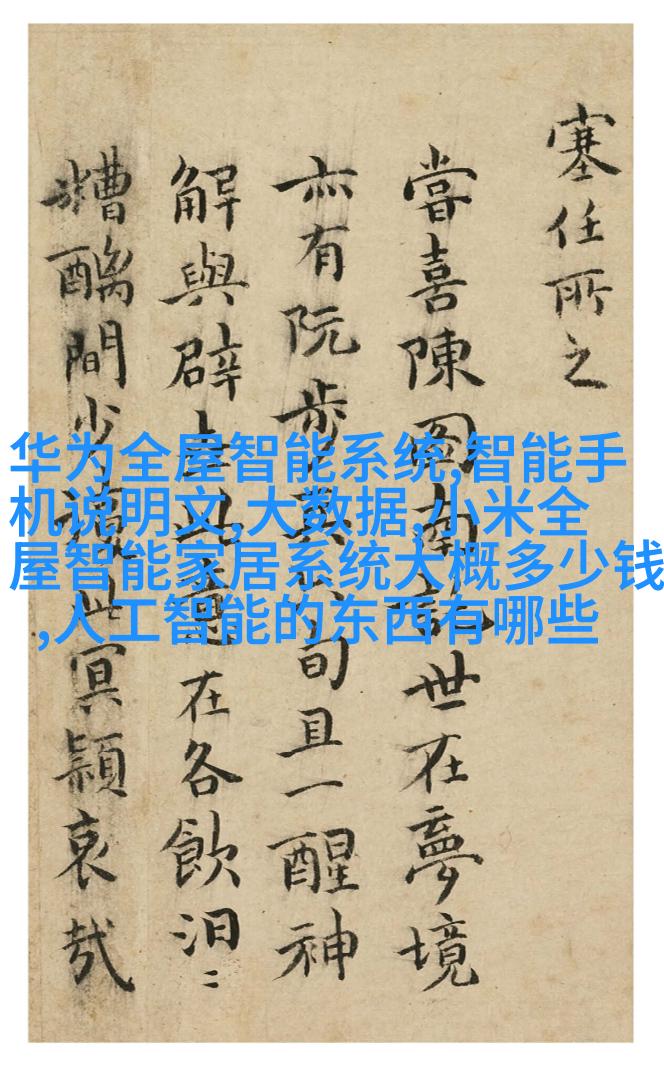 塞任所之
嘗喜陳南世在夢境
亦有阮步旬且一醒神
解與辟此在各飲汨〻
糟醨間少此冥穎哀哉
华为全屋智能系统,智能手
机说明文,大数据,小米全
屋智能家居系统大概多少钱
,人工智能的东西有哪些